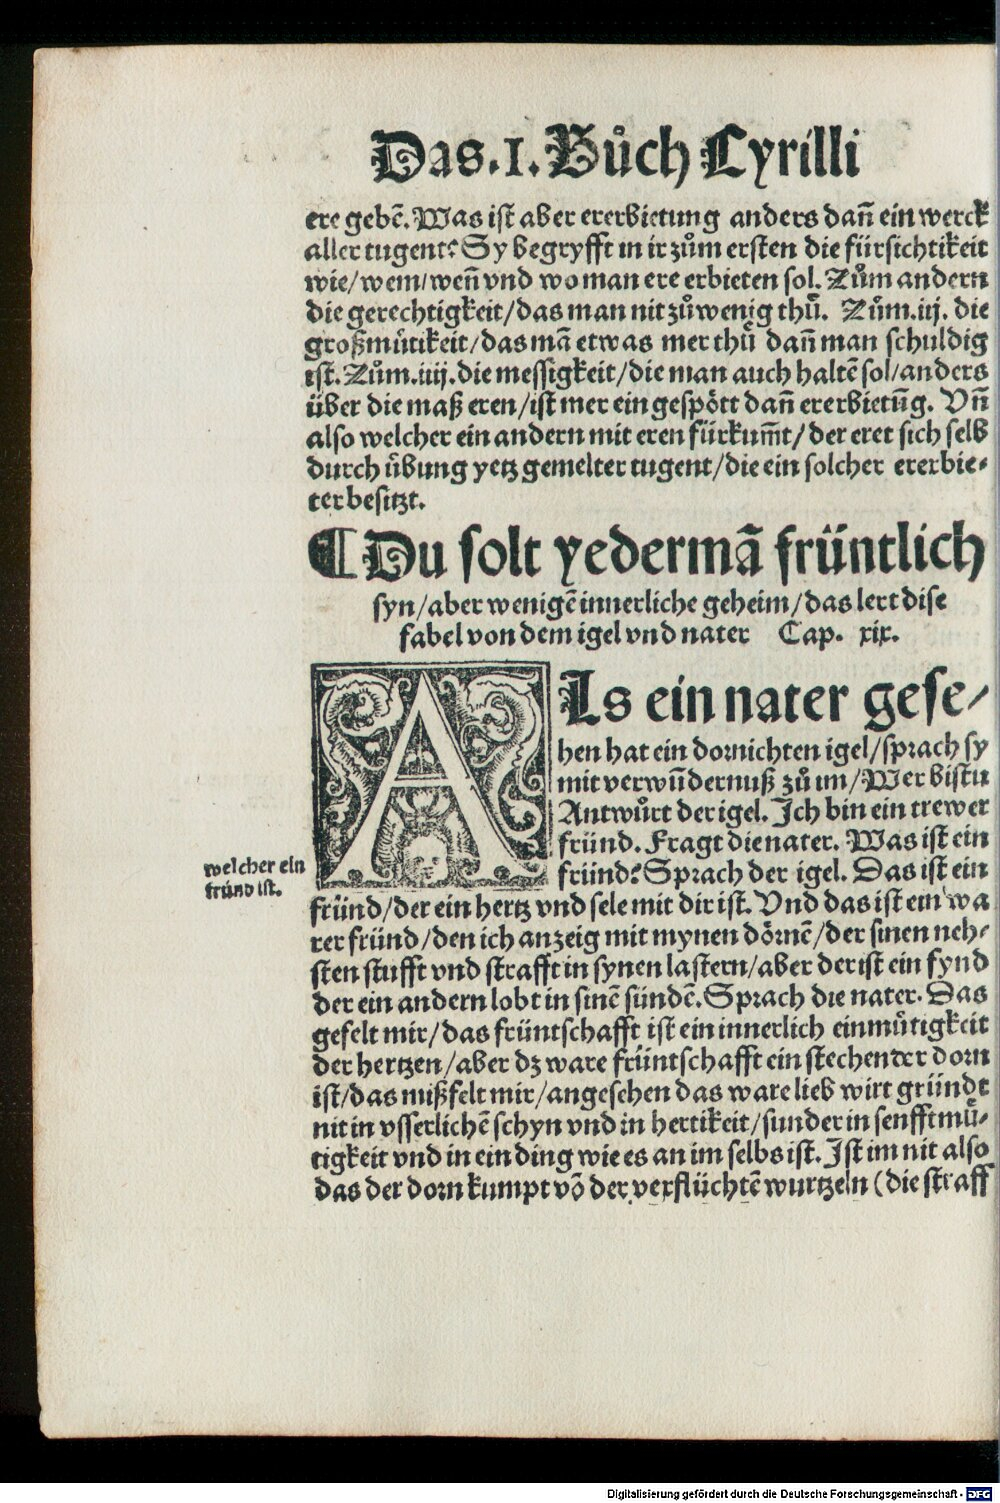 Das.I.Bůch Cyrilli
ere gebẽ. Was ist aber ererbietung anders dañ ein werck
aller tugent? Sy begryfft in ir zům ersten die fürsichtikeit
wie/wem/weñ vnd wo man ere erbieten sol. Zům andern
die gerechtigkeit/das man nit zůwenig thů. Zům.iij. die
großmůtikeit/das mã etwas mer thů dañ man schuldig
ist. Zům.iiij.die messigkeit/die man auch haltẽ sol/anders
über die maß eren/ist mer ein gespött dañ ererbietũg. Vñ
also welcher ein andern mit eren fürkum̃t/der eret sich selb
durch übung yetz gemelter tugent/die ein solcher ererbie⸗
ter besitzt.
¶ Du solt yedermã früntlich
syn/aber wenigẽ innerliche geheim/das lert dise
fabel von dem igel vnd nater Cap. xix.
ALs ein nater gese⸗
hen hat ein dornichten igel/sprach sy
mit verwũdernuß zů im/Wer bistu
Antwůrt der igel. Ich bin ein trewer
fründ. Fragt die nater. Was ist ein
fründ? Sprach der igel. Das ist ein
welcher ein
fründ ist.
fründ/der ein hertz vnd sele mit dir ist. Vnd das ist ein wa
rer fründ/den ich anzeig mit mynen dörnẽ/der sinen neh⸗
sten stufft vnd strafft in synen lastern/aber der ist ein fynd
der ein andern lobt in sinẽ sündẽ. Sprach die nater. Das
gefelt mir/das früntschafft ist ein innerlich einmůtigkeit
der hertzen/aber dz ware früntschafft ein stechender dorn
ist/das mißfelt mir/angesehen das ware lieb wirt gründt
nit in vsserlichẽ schyn vnd in hertikeit/sunder in senfftmů⸗
tigkeit vnd in ein ding wie es an im selbs ist. Ist im nit also
das der dorn kumpt võ der verflüchtẽ wurtzeln (die straff
Digitalisierung gefördert durch die Deutsche Forschungsgemeinschaft - DFG